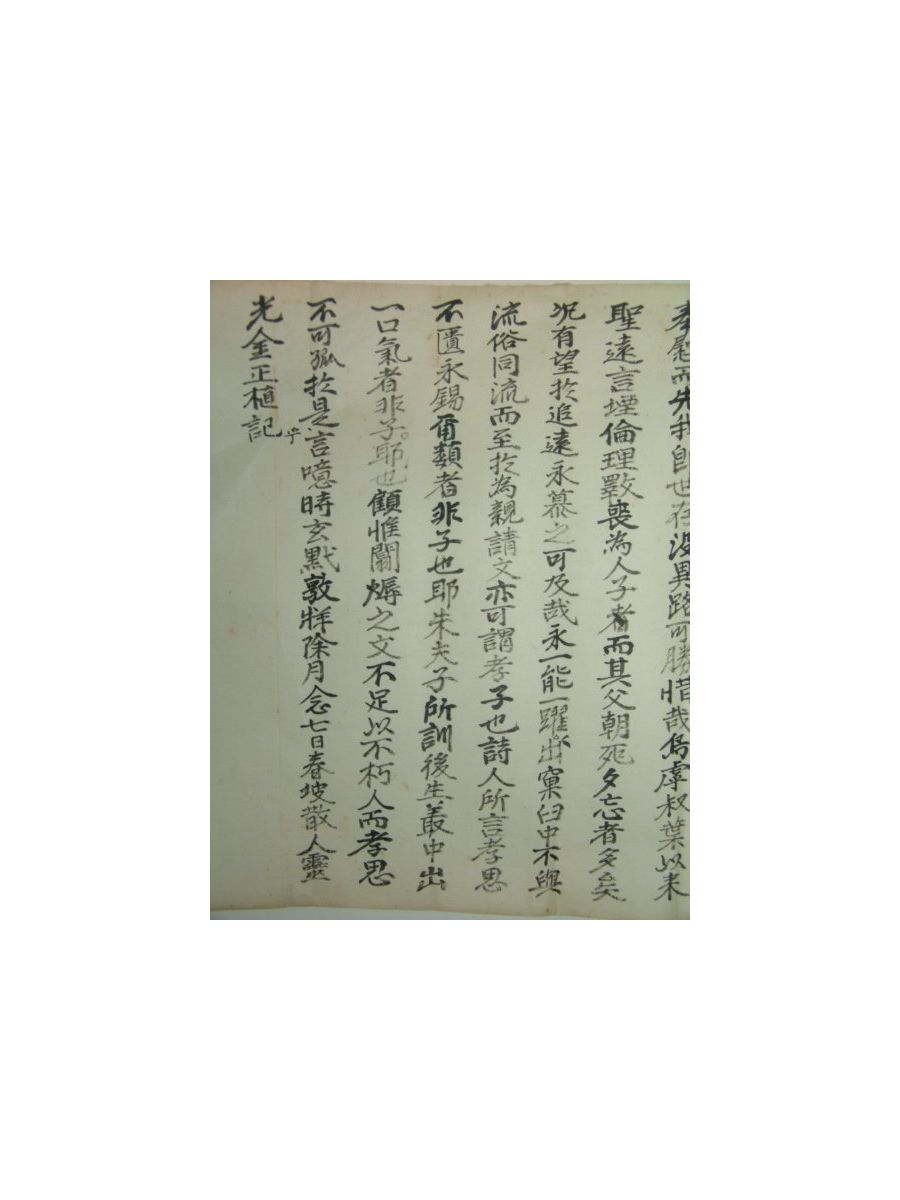 奉慰而失我卽世存没異路可勝惜哉烏虖叔葉以来
聖遠言堙倫理斁喪為人子者而其父朝死夕忘者多矣
况有望於追遠永慕之可及哉永一能一躍出窠臼中不與
流俗同流而至於為親請文亦可謂孝子也詩人所言孝思
不匱永錫甭類者非子也耶朱夫子所訓後生叢中出
一口氣者非子耶也顧惟闒爗之文不足以不朽人而孝思
不可孤於是乎言噫時玄黓敦牂除月念七日春坡散人靈
光金正植記